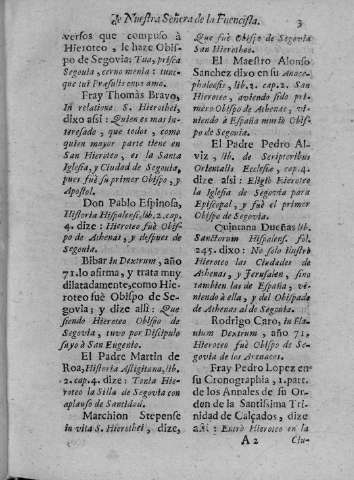 de Nuestra Señora de la Fuencisla. 3
versos que compuso à
Hieroteo, le haze Obis-
po de Segovia: Tua, prisca
Segovia, cerno menia: tunc-
que tui Præsulis ento amo.
Fray Thomàs Bravo,
In relatione S. Hierothei,
dixo assi: Quien es mas in-
teresado, que todos, como
quien mayor parte tiene en
San Hieroteo, es la Santa
Iglesia, y Ciudad de Segovia,
pues fuè su primer Obispo, y
Apostol.
Don Pablo Espinosa,
Historia Hispalensi, lib. 2. cap.
4. dize: Hieroteo fuè Obispo
de Athenas, y despues de
Segovia.
Bibar in Dextrum, año
71. lo afirma, y trata muy
dilatadamente, como Hie-
roteo fuè Obispo de Se-
govia; y dize assi: Que
siendo Hieroteo Obispo de
Segovia, tuvo por Discipulo
suyo à San Eugenio.
El Padre Martin de
Roa, Historia Astigitana, lib.
2. cap. 4. dize: Tenta Hie-
roteo la Silla de Segovia con
aplauso de Santidad.
Marchion Stepense
in vita S. Hierothei, dize,
Que fuè Obispo de Segovia
San Hierotheo.
El Maestro Alonso
Sanchez dixo en su Anace-
phaleosis, lib. 2. cap. 2. San
Hieroteo, aviendo sido pri-
mero Obispo de Athenas, vi-
niendo à España muriò Obis-
po de Segovia.
El Padre Pedro Al-
viz, lib. de Scriptoribus
Orientalis Ecclesiæ, cap. 4.
dize assi: Eligiò Hieroteo
la Iglesia de Segovia para
Episcopal, y fuè el primer
Obispo de Segovia.
Quintana Dueñas lib.
Sanctorum Hispalens. fol.
245. dixo: No solo ilustrò
Hieroteo las Ciudades de
Athenas, y Jerusalen, sino
tambien las de España, vi-
niendo à ella, y del Obispado
de Athenas al de Segovia.
Rodrigo Caro, in Fla-
vium Dextrum, año 71,
Hieroteo fuè Obispo de Se-
govia de los Arenacos.
Fray Pedro Lopez en
su Cronographia, 1. part.
de los Annales de su Or-
den de la Santissima Tri-
nidad de Calçados, dize
assi: Entrò Hieroteo en la
A 2 Ciu-